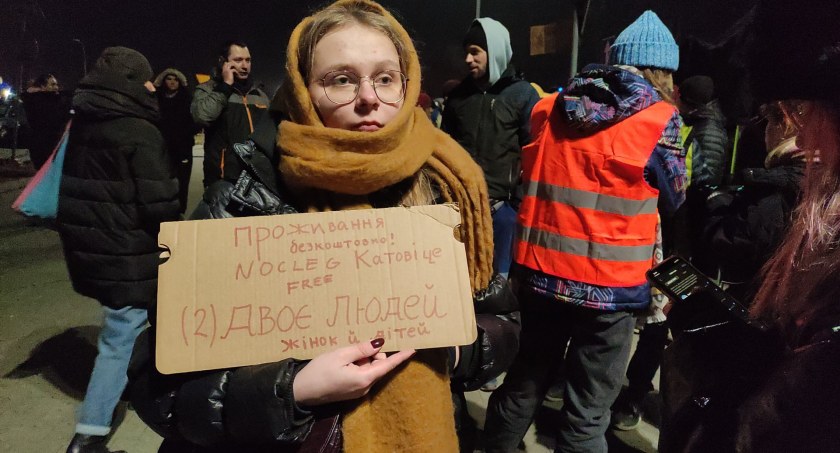 Проживання
безкоштовно!
NOCLEG Катовіце
FREE
(2) ДВОЄ ЛЮДЕЙ
жінок й дітей